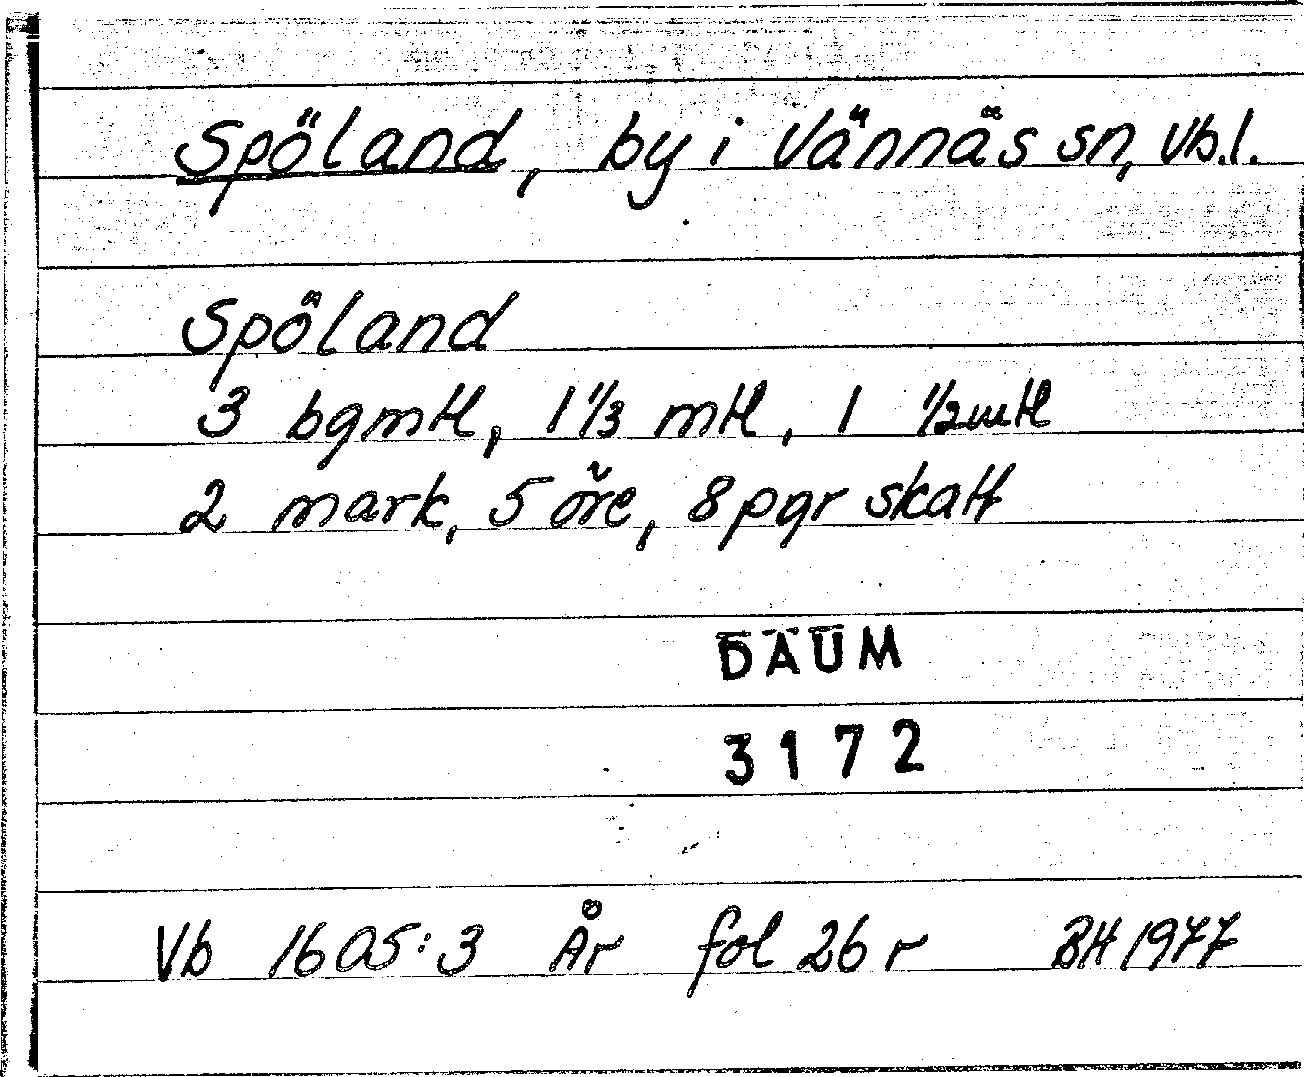 Spöland, by i Vännäs sn, Vb.l.
Spöland
3 bgmtl, 1 1/3 mtl, 1 1/2 mtl
2 mark, 5 öre, 8 pgr skatt
DAUM
3172
Vb 1605:3 År fol 26 r BH 1977